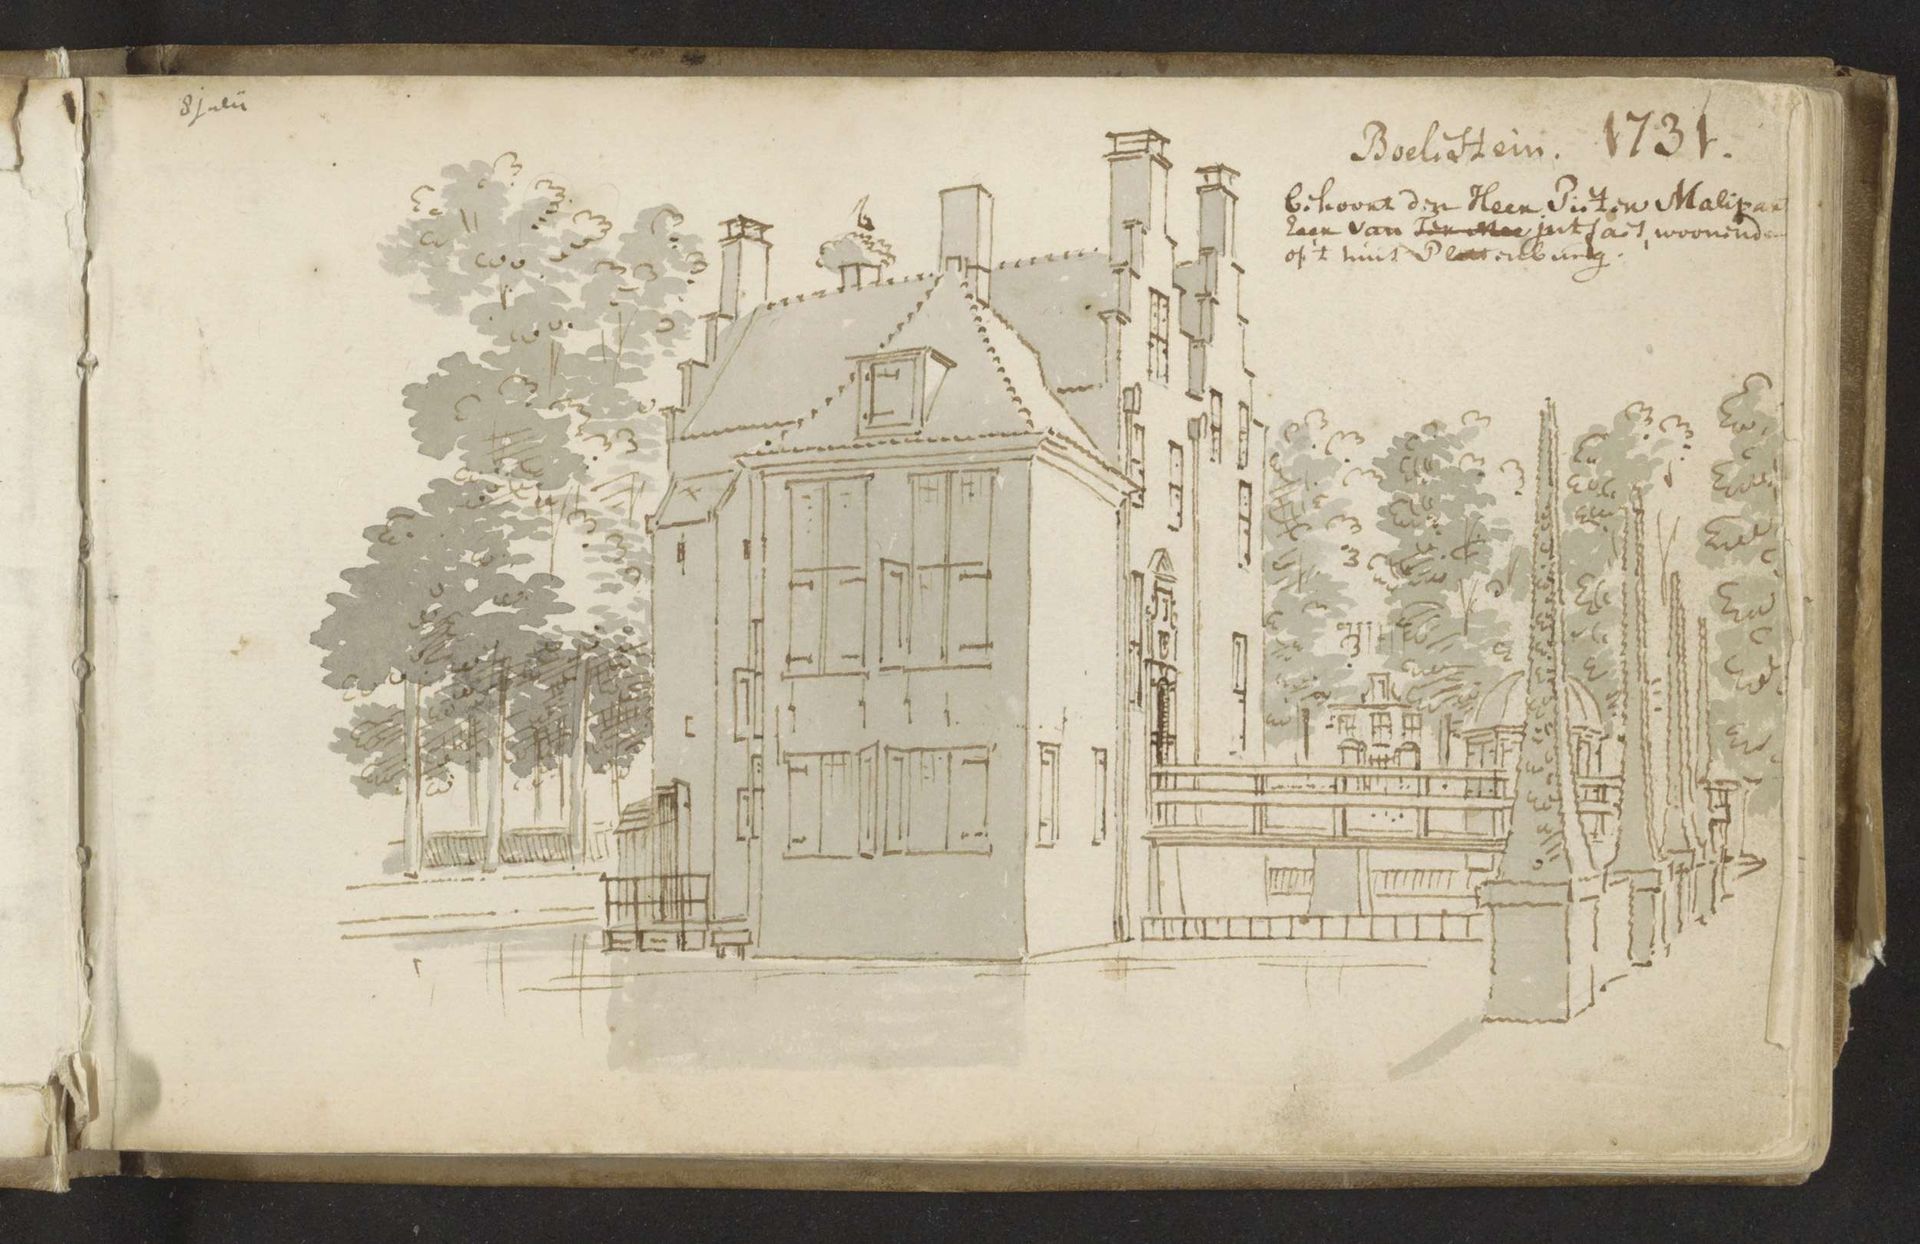 8 julii
Boelestein. 1731.
behoort den Heer Pieter Malipart
Heer van jutfaes, woonende
op 't huis Plettenburg.